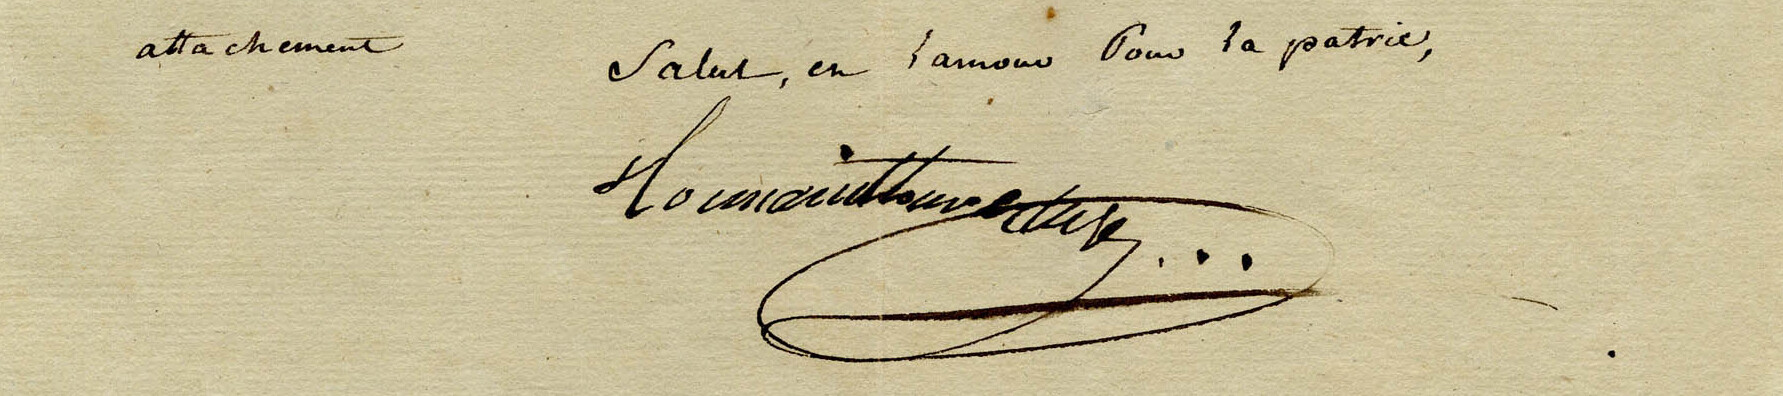 attachement
Salut, en lamour Pour la patrie,
Toussaint Louverture